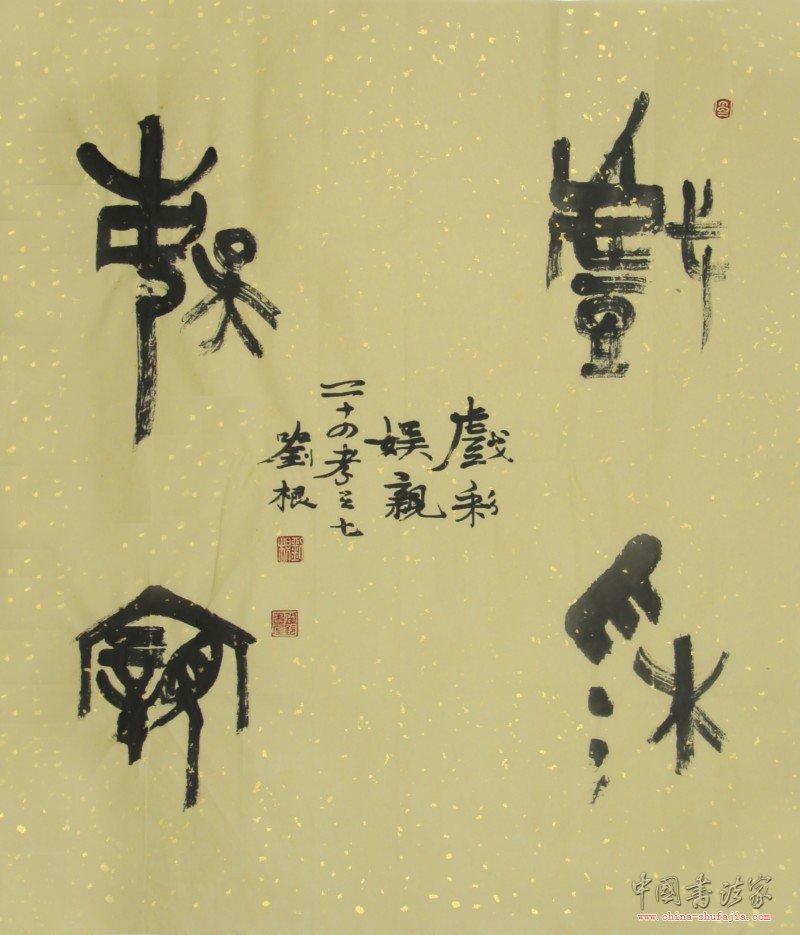 戲彩
娛親
戲彩
娛親
二十四孝之七
劉根
中国书法家
www.china-shufajia.com